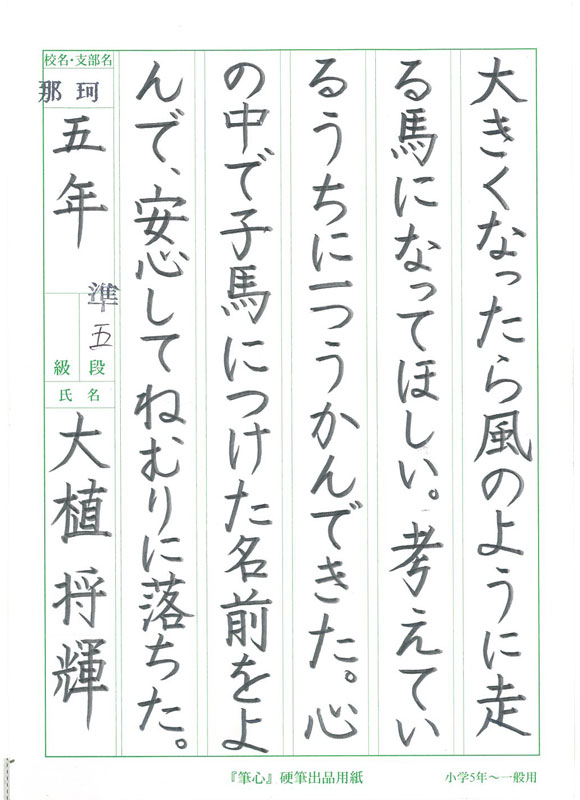 大きくなったら風のように走
る馬になってほしい。考えてい
るうちに一つうかんできた。心
の中で子馬につけた名前をよ
んで、安心してねむりに落ちた。
校名・支部名
那珂
五年
準五
段
級
氏名
大植将輝
『筆心』硬筆出品用紙
小学5年〜一般用